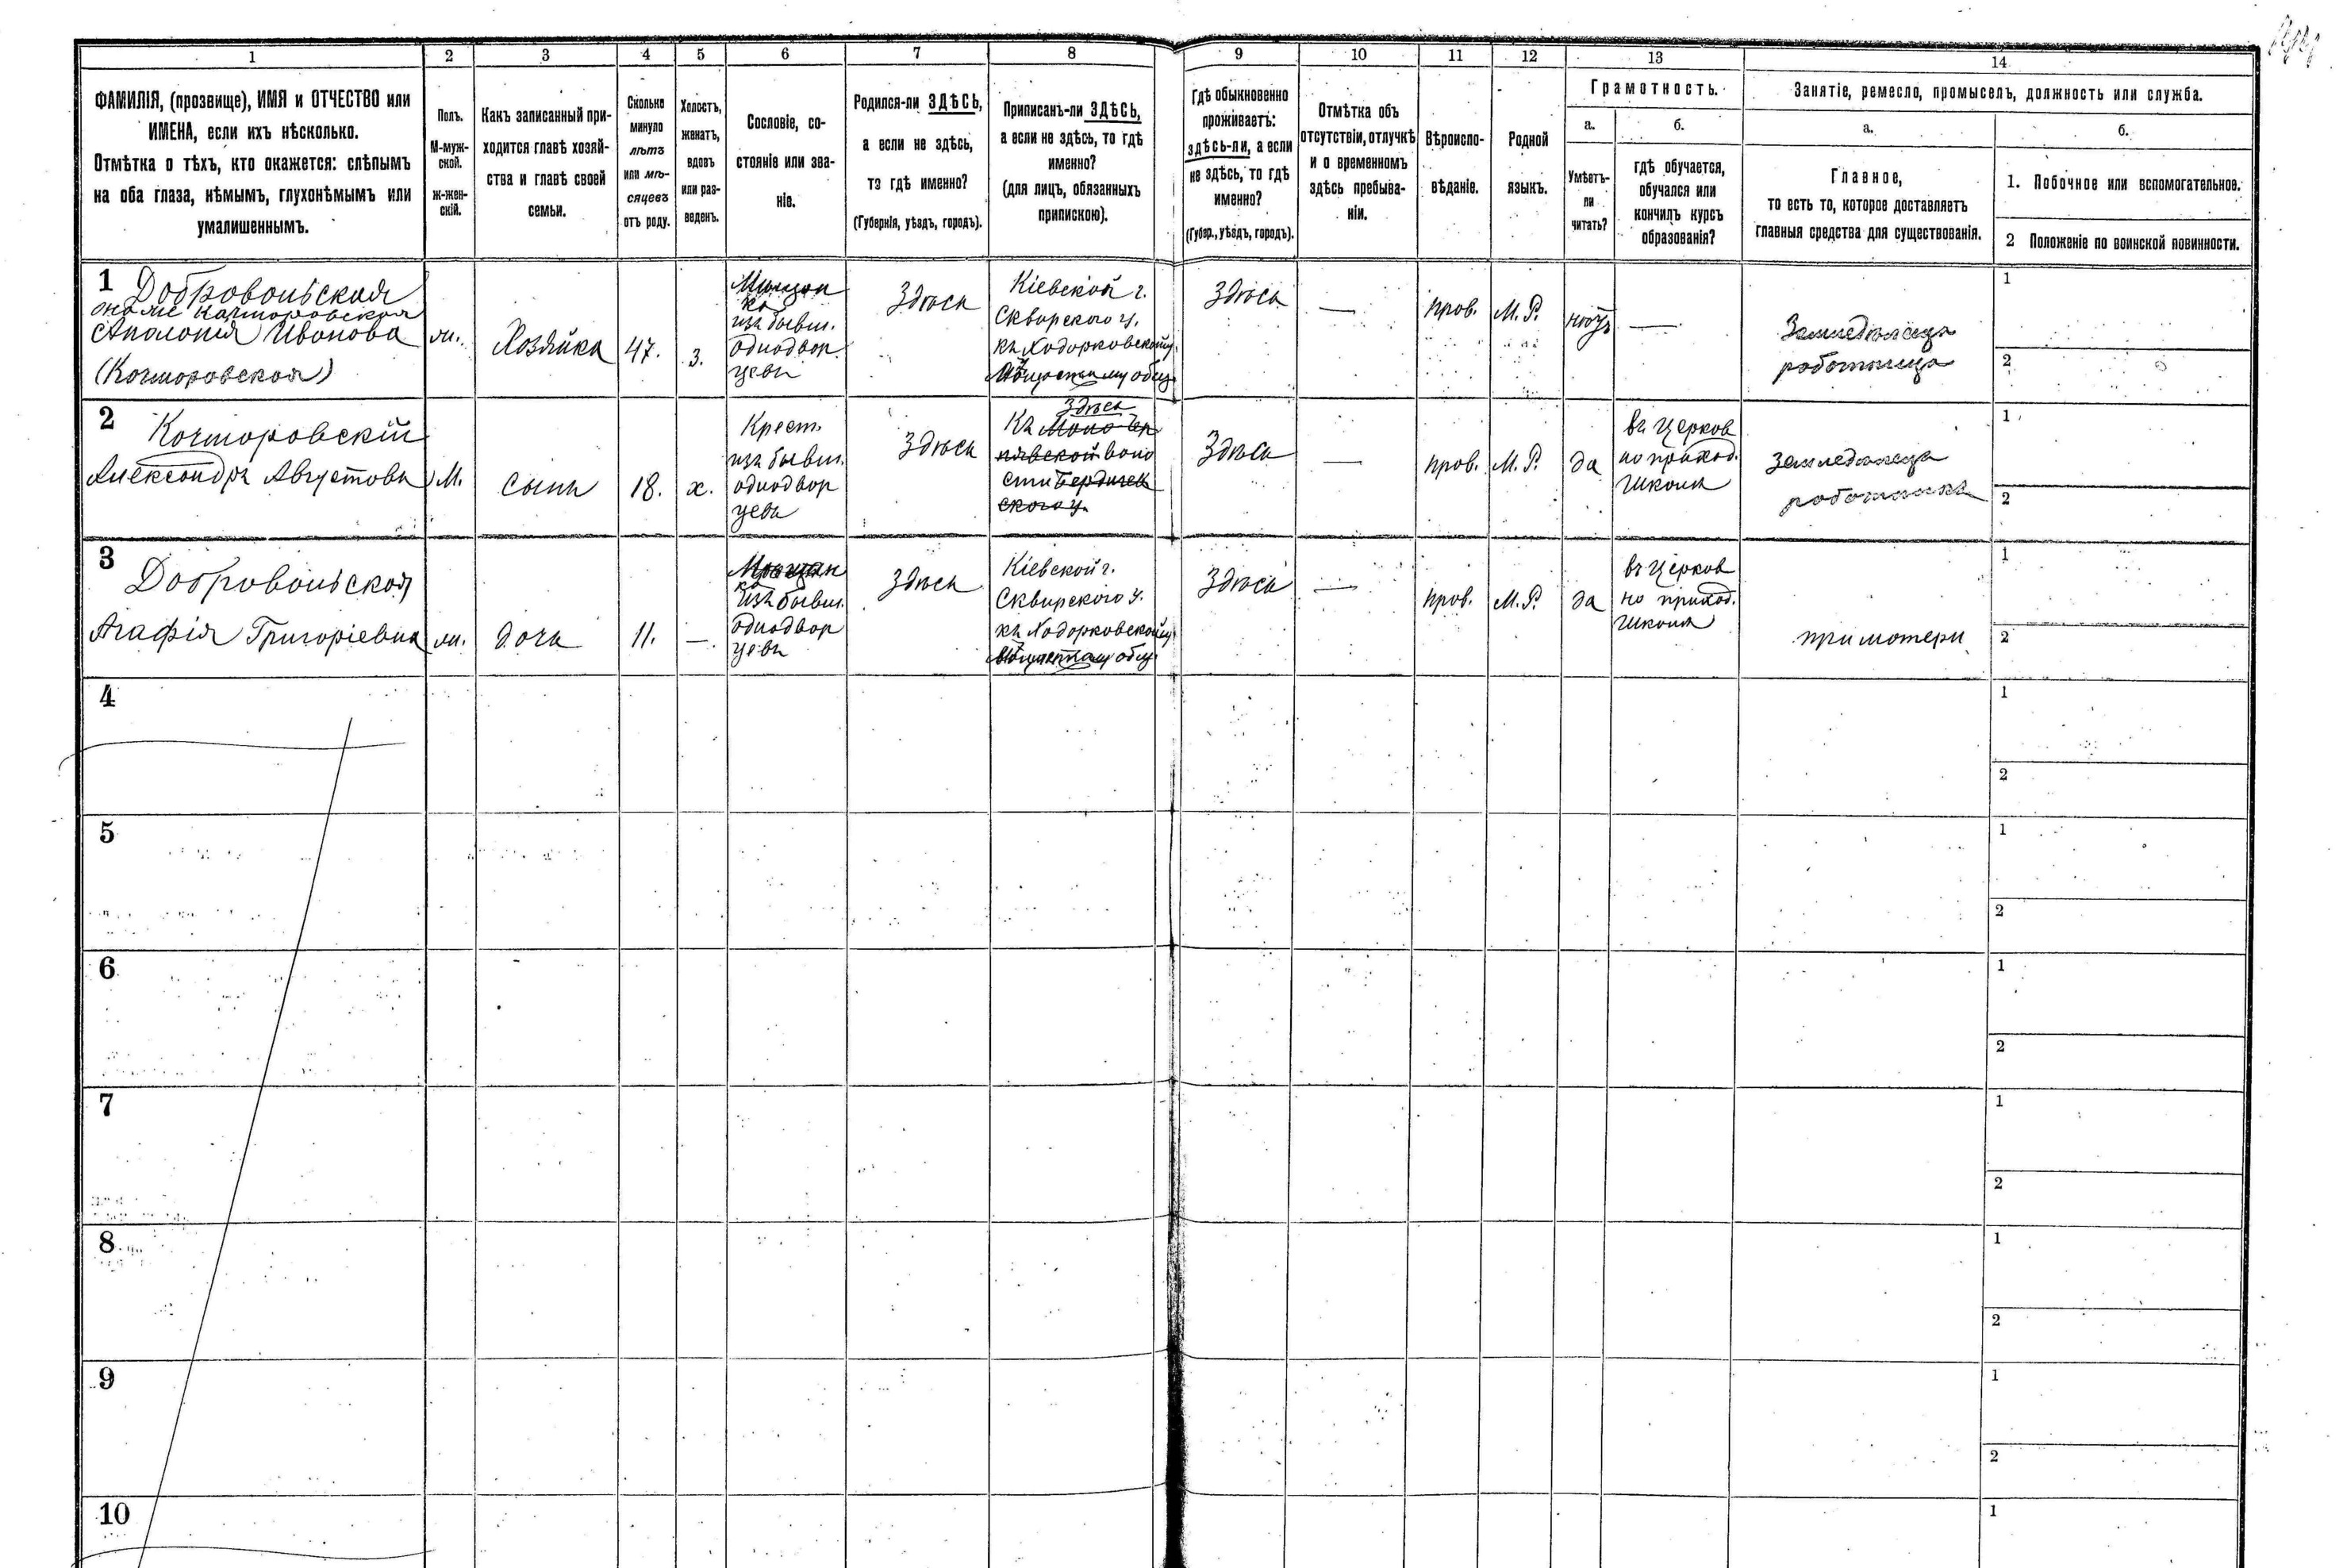 1 2 3 4 5 6 7 8 9 10 11 12 13 14
ФАМИЛІЯ, (прозвище), ИМЯ и ОТЧЕСТВО или
ИМЕНА, если ихъ нѣсколько.
Отмѣтка о тѣхъ, кто окажется: слѣпымъ
на оба глаза, нѣмымъ, глухонѣмымъ или
умалишеннымъ.
Полъ.
М-муж-
ской.
ж-жен-
скій.
Какъ записанный при-
ходится главѣ хозяй-
ства и главѣ своей
семьи.
Сколько
минуло
лѣтъ
или мѣ-
сяцевъ
отъ роду.
Холостъ,
женатъ,
вдовъ
или раз-
веденъ.
Сословіе, со-
стояніе или зва-
ніе.
Родился-ли ЗДѢСЬ,
а если не здѣсь,
то гдѣ именно?
(Губернія, уѣздъ, городъ).
Приписанъ-ли ЗДѢСЬ,
а если не здѣсь, то гдѣ
именно?
(для лицъ, обязанныхъ
припискою).
Гдѣ обыкновенно
проживаетъ:
здѣсь-ли, а если
не здѣсь, то гдѣ
именно?
(Губер., уѣздъ, городъ).
Отмѣтка объ
отсутствіи, отлучкѣ
и о временномъ
здѣсь пребыва-
ніи.
Вѣроиспо-
вѣданіе.
Родной
языкъ.
Грамотность.
а.
Умѣетъ-
ли
читать?
б.
гдѣ обучается,
обучался или
кончилъ курсъ
образованія?
Занятіе, ремесло, промыселъ, должность или служба.
а.
Главное,
то есть то, которое доставляетъ
главныя средства для существованія.
б.
1. Побочное или вспомогательное.
2 Положеніе по воинской повинности.
1
Добровольская
Аполонія Иванова
(Качторовская)
Хозяйка
47.
з.
изъ бывш.
однодвор
цевъ
Здѣсь
Кіевской г.
Сквирского у.
къ Ходорковскому
Здѣсь
—
прав.
М. Р.
нѣтъ
—
Земледѣлеца
работница
1
2
2
Качторовскій
Александръ Августовъ
М.
сынъ
18.
х.
Крест.
изъ бывш.
однодвор
цевъ
Здѣсь
Здѣсь
Здѣсь
—
прав.
М. Р.
да
въ Церков
но приход.
школѣ
земледѣлеца
работникъ
1
2
3
Добровольская
Агафія Григоріевна
дочь
11.
—
изъ бывш.
однодвор
цевъ
Здѣсь
Кіевской г.
Сквирского у.
къ Ходорковскому
Здѣсь
—
прав.
М. Р.
да
въ Церков
но приход.
школѣ
при матери
1
2
4
1
2
5
1
2
6
1
2
7
1
2
8
1
2
9
1
2
10
1